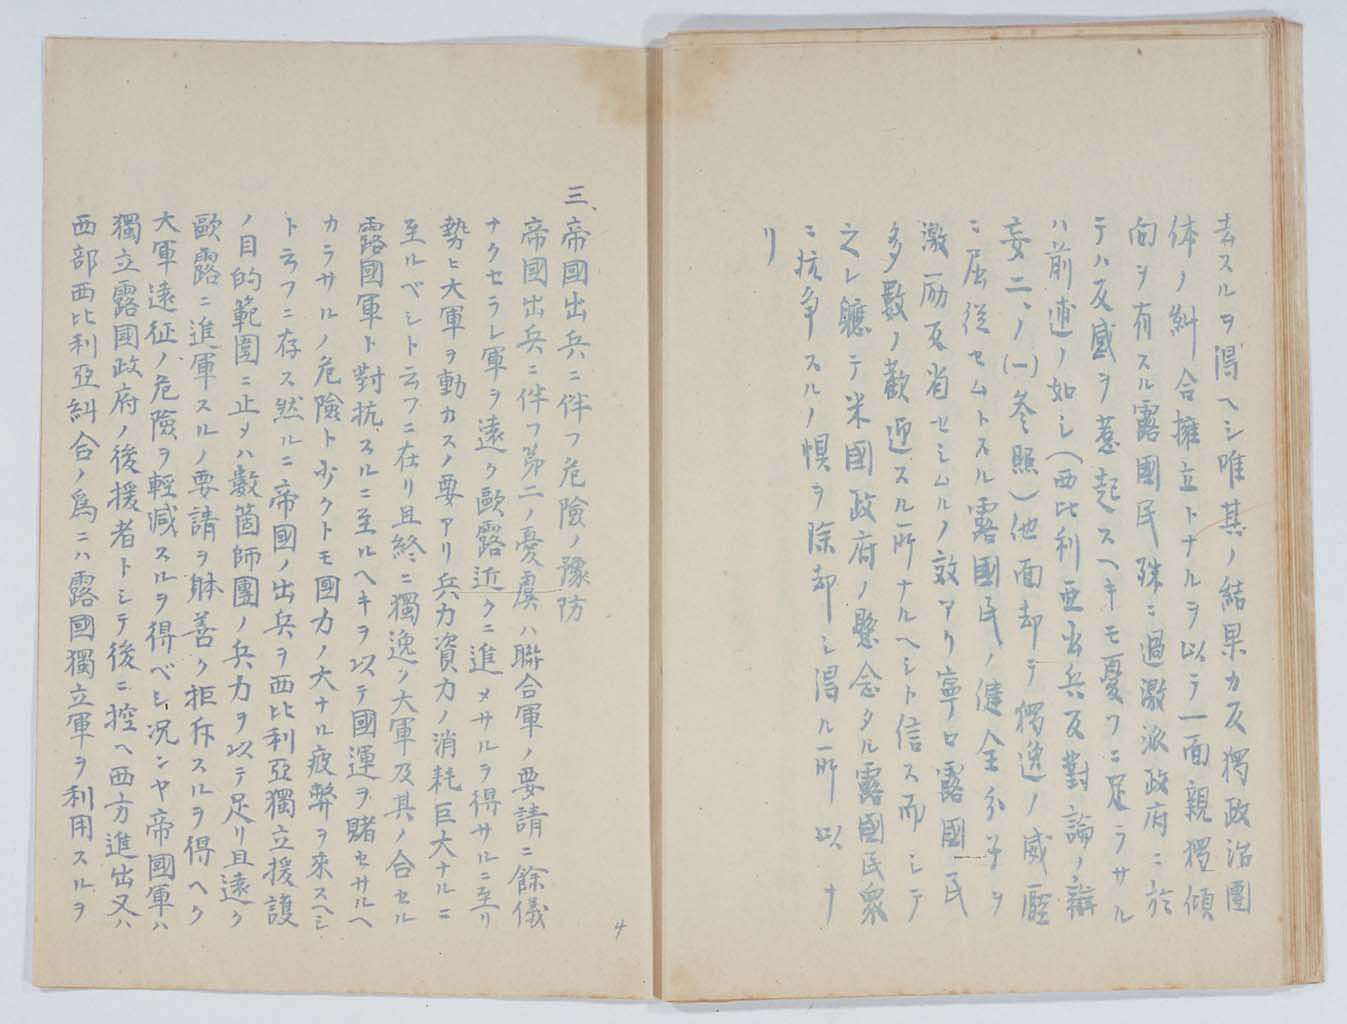 去スルヲ得ヘシ唯其ノ結果カ反獨政治團
体ノ糾合擁立トナルヲ以テ一面親獨傾
向ヲ有スル露國民殊ニ過激派政府ニ於
テハ反感ヲ惹起スヘキモ憂フニ足ラサル
ハ前述ノ如シ(西比利亜出兵反對論ノ辯
妄二、ノ(一)参照)他面却テ獨逸ノ威壓
ニ屈従セムトスル露國民ノ健全分子ヲ
激励反省セシムルノ效アリ寧ロ露國民
多數ノ歡迎スル所ナルヘシト信ス而シテ
之レ軈テ米國政府ノ懸念タル露國民衆
ニ抗争スルノ惧ヲ除却シ得ル所以ナ
リ
三、帝國出兵ニ伴フ危險ノ豫防
帝國出兵ニ伴フ第二ノ憂虞ハ聯合軍ノ要請ニ餘儀
ナクセラレ軍ヲ遠ク歐露近クニ進メサルヲ得サルニ至リ
勢ヒ大軍ヲ動カスノ要アリ兵力資力ノ消耗巨大ナルニ
至ルベシト云フニ在リ且終ニ獨逸ノ大軍及其ノ合セル
露國軍ト對抗スルニ至ルヘキヲ以テ國運ヲ賭セサルヘ
カラサルノ危險ト少クトモ國力ノ大ナル疲弊ヲ來スヘシ
ト云フニ存ス然ルニ帝國ノ出兵ヲ西比利亞獨立援護
ノ目的範圍ニ止メハ數箇師團ノ兵力ヲ以テ足リ且遠ク
歐露ニ進軍スルノ要請ヲ躰善ク拒斥スルヲ得ヘク
大軍遠征ノ危險ヲ輕減スルヲ得ベシ况ンヤ帝國軍ハ
獨立露國政府ノ後援者トシテ後ニ控ヘ西方進出又ハ
西部西比利亞糾合ノ爲ニハ露國獨立軍ヲ利用スルヲ
4